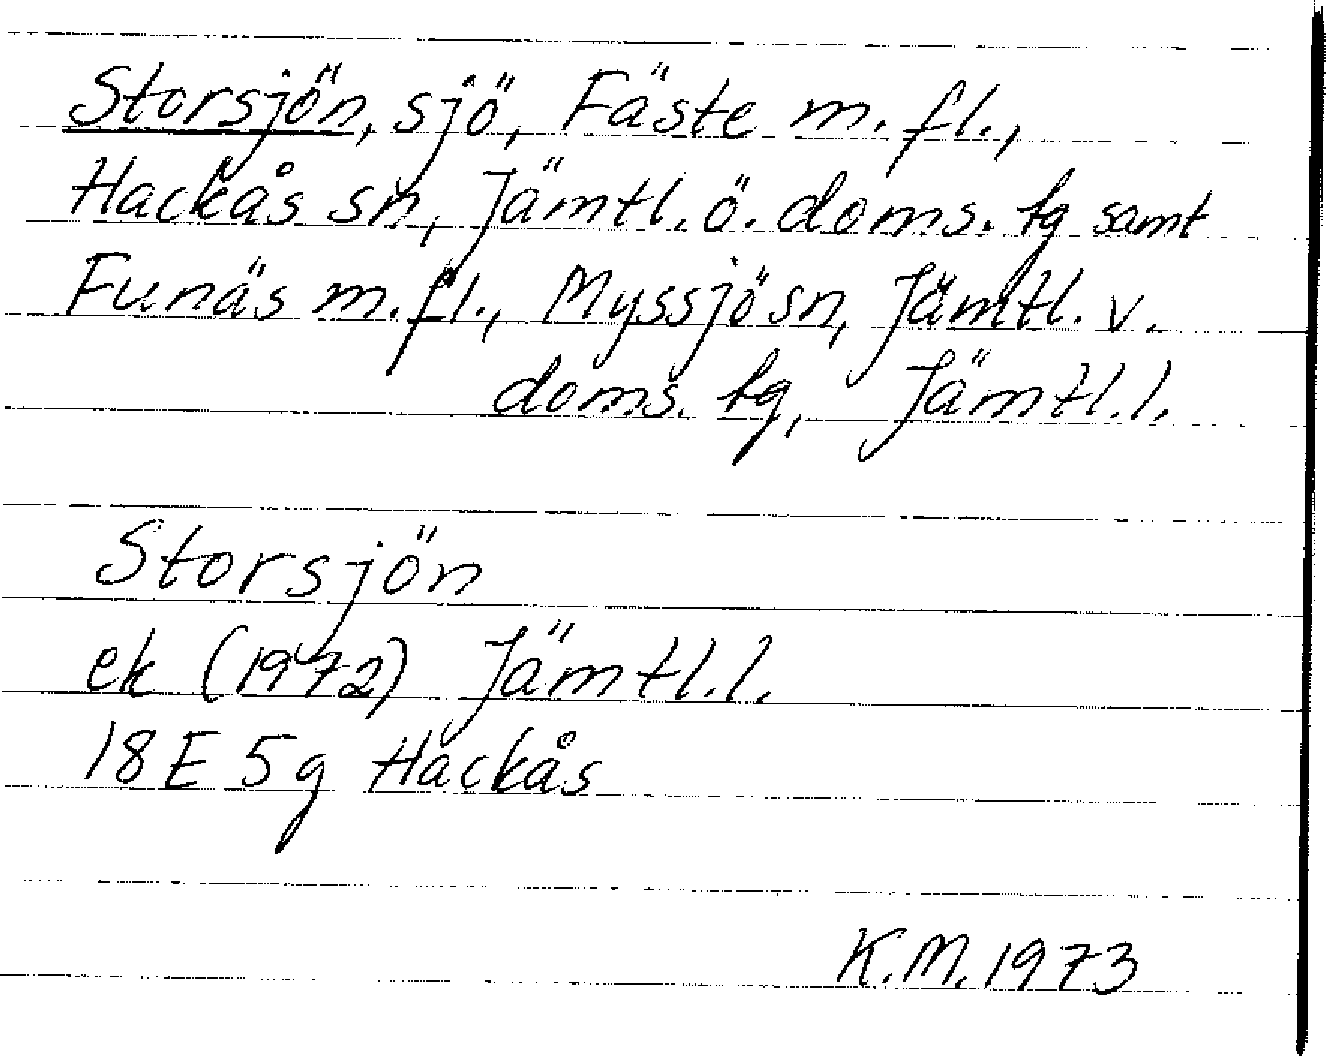 Storsjön, sjö, Fäste m. fl.,
Hackås sn, Jämtl. ö. doms. tg samt
Funäs m. fl., Myssjö sn, Jämtl. v.
doms. tg, Jämtl. l.
Storsjön
ek (1972) Jämtl. l.
18 E 5 g Hackås
K.M. 1973